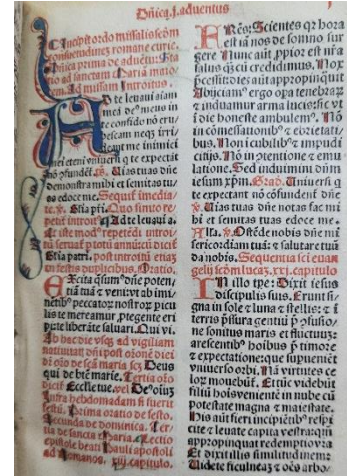 Dñica.I.aduentus
Incipit ordo missalis scḋm
consuetudinez romane curie.
Dñica prima de aduẽtu. Sta
tio ad sanctam Mariã maio
rem. Ad missam Introitus.
Ad te leuaui aĩam
meã deꝰ meus in
te confido nõ eru
bescam neqꝫ irri
deant me inimici
mei eteni vniuersi q̃ te expectãt
nõ ꝯfundẽť. ꝟ. Uias tuas dñe
demonstra mihi et semitas tu
as edoce me. Sequiť imedia
te. ꝟ. Gl̃ia pr̃i. Quo finito re
petiť introiť Ad te leuaui a.
Et iste modꝰ repetẽdi introi
tũ seruať ꝑ totũ annũ cũ diciť
Gl̃ia patri. post introitũ etiaꝫ
in festis duplicibus. Oratio.
Excita q̃sumꝰ dñe poten
tiã tuã ⁊ veni: vt ab imi
nẽtibꝰ peccatoꝝ nostroꝝ picu
lis te mereamur ꝓtegente eri
pi: te liberãte saluari. Qui vi.
Ab hac die vsqꝫ ad vigiliam
natiuitatꝭ dñi post orõnẽ diei
diciť orõ de scã maria scꝫ Deus
qui de btẽ marie. Tertia orõ
diciť Ecclesie tue. vel De oĩuꝫ
Infra hebdomadam si fuerit
festũ. Prima oratio de festo.
Secunda de dominica. Ter
tia de sancta Maria. Lectio
epistole beati Pauli apostoli
ad Romanos. xiij. capitulo.
FRẽs: Scientes qꝛ hora
est iã nos de somno sur
gere. Nunc aut̃ ꝓpior est nr̃a
salus q̃ꝫ cũ credidimus. Nox
p̃cessit: dies aũt appropinquauit
Abijciamꝰ ergo opa tenebraꝝ
⁊ induamur arma lucis: sic vt
ĩ die honeste ambulemꝰ. Nõ
in cõmessationibꝰ ⁊ ebrietati
bus. Non ĩ cubilibꝰ ⁊ impudi
citijs. Nõ in ꝯtentione ⁊ emu
latione. Sed induimini dñm
iesum xp̃m. Grad. Uniuersi q̃
te expectant nõ cõfundenť dñe
ꝟ. Uias tuas dñe notas fac mi
hi et semitas tuas edoce me.
Alľa. ꝟ. Ostẽde nobis dñe mi
sericordiam tuã: ⁊ salutare tuũ
da nobis. Sequentia sci euan
gelij scḋm lucaꝫ. xxj. capitulo
IN illo tpe: Dixit iesus
discipulis suis. Erunt si
gna in sole ⁊ luna ⁊ stellis: ⁊ ĩ
terris pssura gentiũ ꝑ ꝯfusio
ne sonitus maris et fluctuuꝫ:
arescentibꝰ hoibus ꝑ timore
⁊ expectatione: que supueniẽt
vniuerso orbi. Nã virtutes ce
loꝝ mouebũť. Et tũc videbũt
filiũ hoĩs veniẽtẽ in nube cũ
potestate magna ⁊ maiestate.
His aũt fieri incipiẽtibꝰ respi
cite ⁊ leuate capita vestra: qm̃
appropinquat redemptio vr̃a
Et dixit illis similitudineꝫ.
Uidete ficulneaꝫ ⁊ oẽs arbo